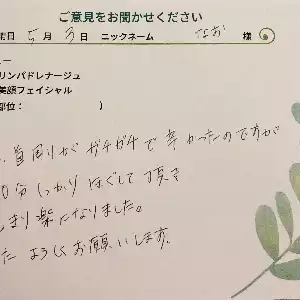 ご意見をお聞かせください
日 5月3日 ニックネーム なお 様
ー
リンパドレナージュ
美顔フェイシャル
部位: )
首周りがガチガチで辛かったのですが
0分しっかりほぐして頂き
まり楽になりました。
た よろしくお願いします。